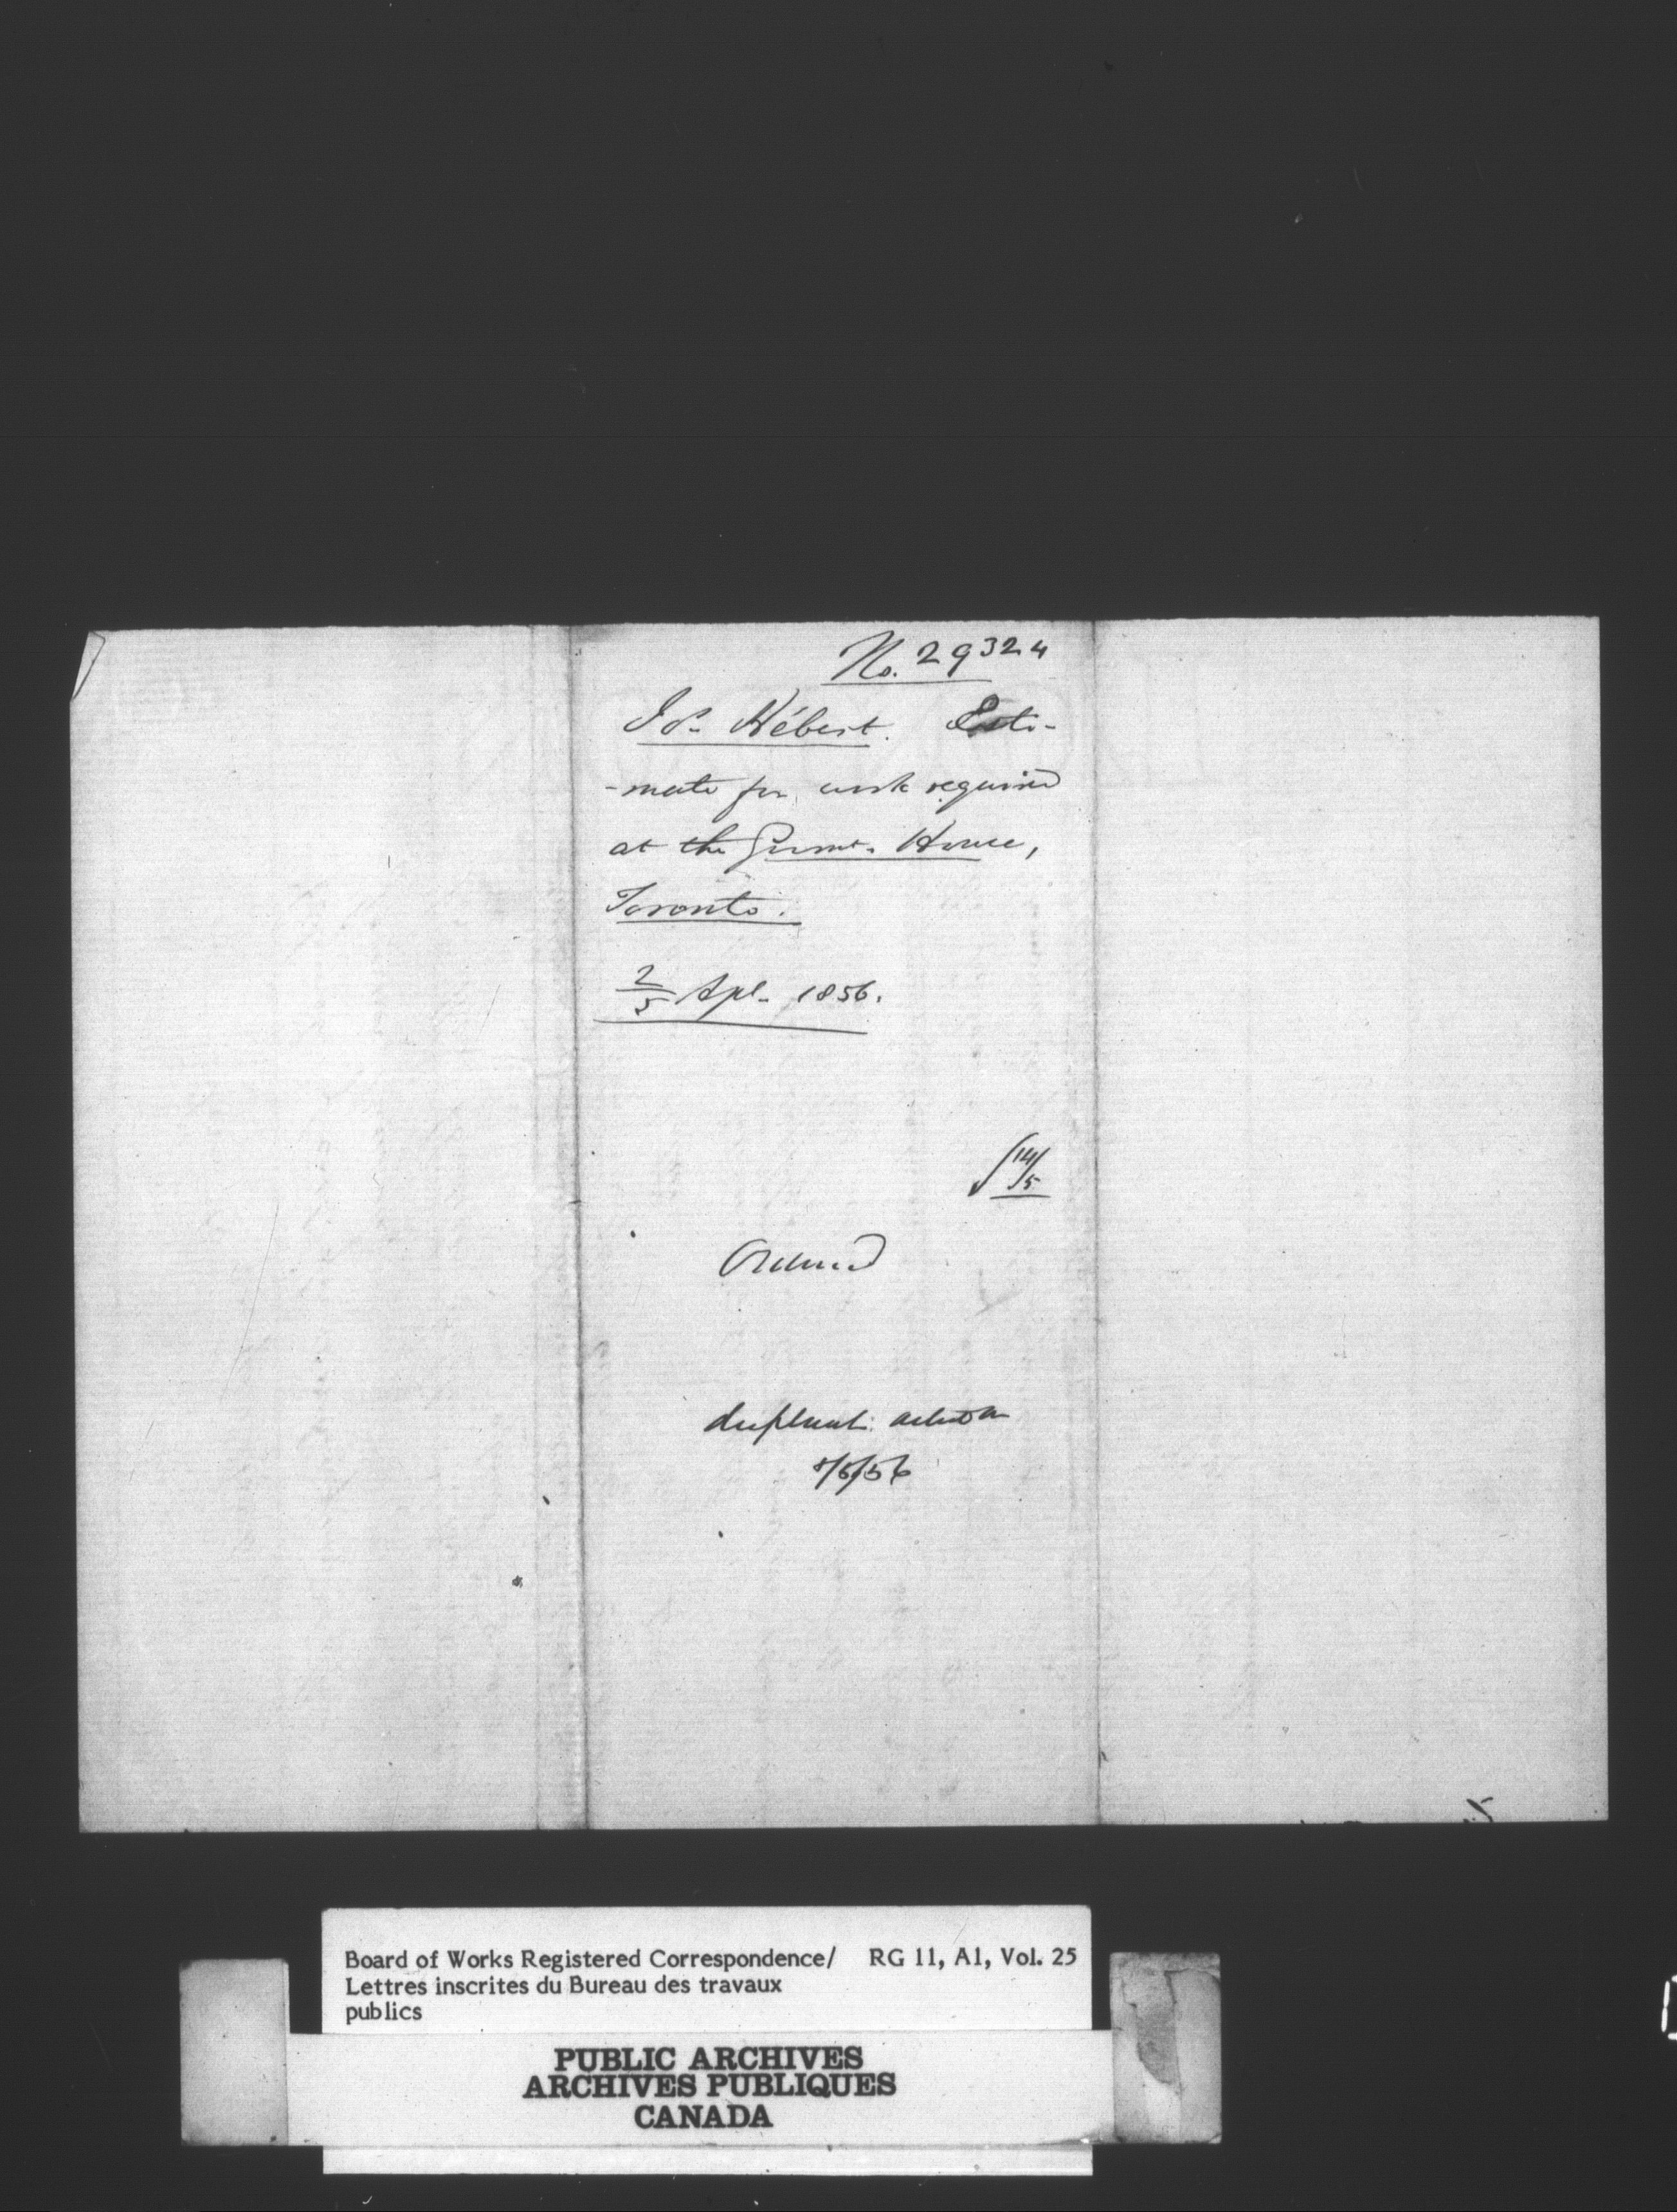 No. 29324
Js. Hébert. Esti-
-mate for work required
at the Govmt. House,
Toronto.
2/5 Apl. 1856.
14/5
Ordered
8/5/56
Board of Works Registered Correspondence/ RG 11, A1, Vol. 25
Lettres inscrites du Bureau des travaux
publics
PUBLIC ARCHIVES
ARCHIVES PUBLIQUES
CANADA